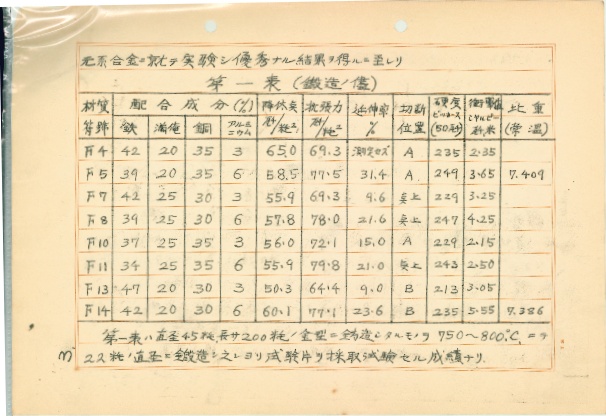 元系合金ニ就テ実験シ優秀ナル結果ヲ得ルニ至レリ
第一表(鍛造ノ儘)
材質符号 配合成分(%) 降伏点瓩/粍² 抗張力瓩/粍² 延伸率% 切断位置 硬度(50秒) 比重(常温)
鉄 満俺 銅 アルミニウム
F4 42 20 35 3 65.0 69.3 測定セズ A 235 2.35
F5 39 20 35 6 58.5 77.5 31.4 A 249 3.65 7.409
F7 42 25 30 3 55.9 69.3 9.6 仝上 229 3.25
F8 39 25 30 6 57.8 78.0 21.6 仝上 247 4.25
F10 37 25 35 3 56.0 72.1 15.0 A 229 2.15
F11 34 25 35 6 55.9 79.8 21.0 仝上 243 2.50
F13 47 20 30 3 50.3 64.4 9.0 B 213 3.05
F14 42 20 30 6 60.1 77.1 23.6 B 235 5.55 7.386
第一表ハ直径45粍長サ200粍ノ金型ニ鋳造シタルモノヲ750~800℃ニテ
22粍ノ直径ニ鍛造シ之レヨリ試験片ヲ採取試験セル成績ナリ.